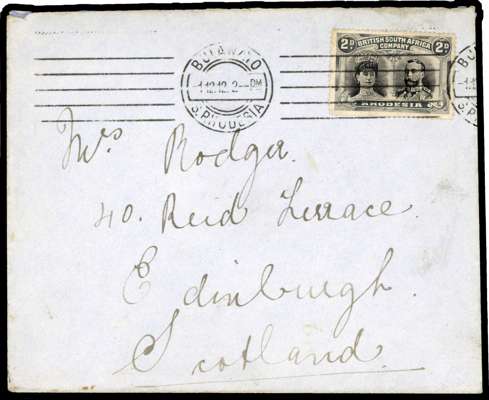 BULAWAYO
1.12.12. 2 - PM
S. RHODESIA
2D BRITISH SOUTH AFRICA COMPANY 2D
RHODESIA
Mrs Rodger.
40. Reid Terrace.
Edinburgh.
Scotland.